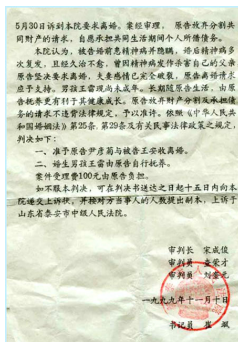 5月30日诉到本院要求离婚。案经审理，原告放弃分割共
同财产的请求，自愿承担共同生活期间个人所借债务。
本院认为，被告婚前患精神病并隐瞒，婚后精神病多
次复发，且经久治不愈，曾因精神病发作杀害自己的父亲
原告坚决要求离婚，夫妻感情已完全破裂，原告离婚请求
应予支持。男孩王雷现尚未成年。长期随原告生活，由原
告抚养更有利于其健康成长。原告放弃财产分割及承担债
务的请求不违背法律规定，予以准许。依照《中华人民共
和国婚姻法》第25条、第29条及有关民事法律政策之规定，
判决如下：
一、准予原告尹彦菊与被告王安收离婚。
二、婚生男孩王雷由原告自行抚养。
案件受理费100元由原告负担。
如不服本判决，可在判决书送达之日起十五日内向本
院递交上诉状，并按对方当事人的人数提出副本，上诉于
山东省泰安市中级人民法院。
审判长 宋成俊
审判员 金荣才
审判员 刘奎元
一九九九年十一月十日
书记员 崔